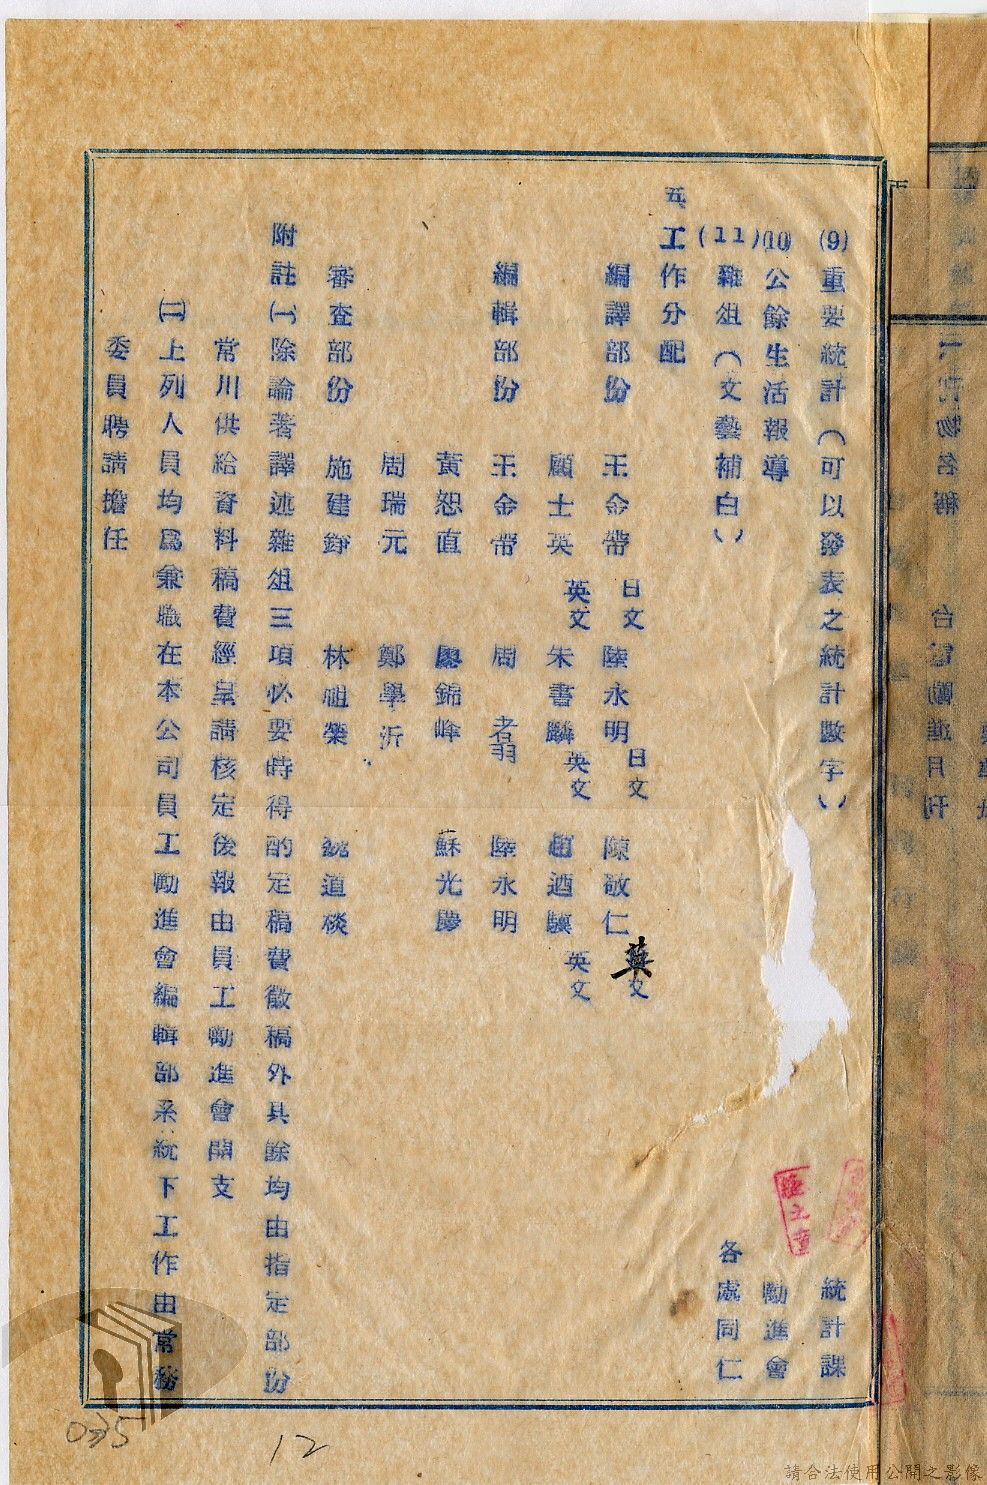 (9)重要統計（可以發表之統計數字） 統計課
(10)公餘生活報導 勵進會
(11)雜俎（文藝補白） 各處同仁
五 工作分配
編譯部份 王金帶 日文 陸永明 日文 陳敬仁 英文
顧士英 英文 朱書麟 英文 趙迺驥 英文
編輯部份 王金帶 周 翥 陸永明
黃恕直 廖錦峰 蘇光慶
周瑞元 鄭學沂
審查部份 施建錚 林祖榮 魏道琰
附註(一)除論著譯述雜俎三項必要時得酌定稿費徵稿外其餘均由指定部份
常川供給資料稿費經呈請核定後報由員工勵進會開支
(二)上列人員均爲兼職在本公司員工勵進會編輯部系統下工作由常務
委員聘請擔任
六 刊物名稱 台 勵進月刊
035
12
請合法使用公開之影像